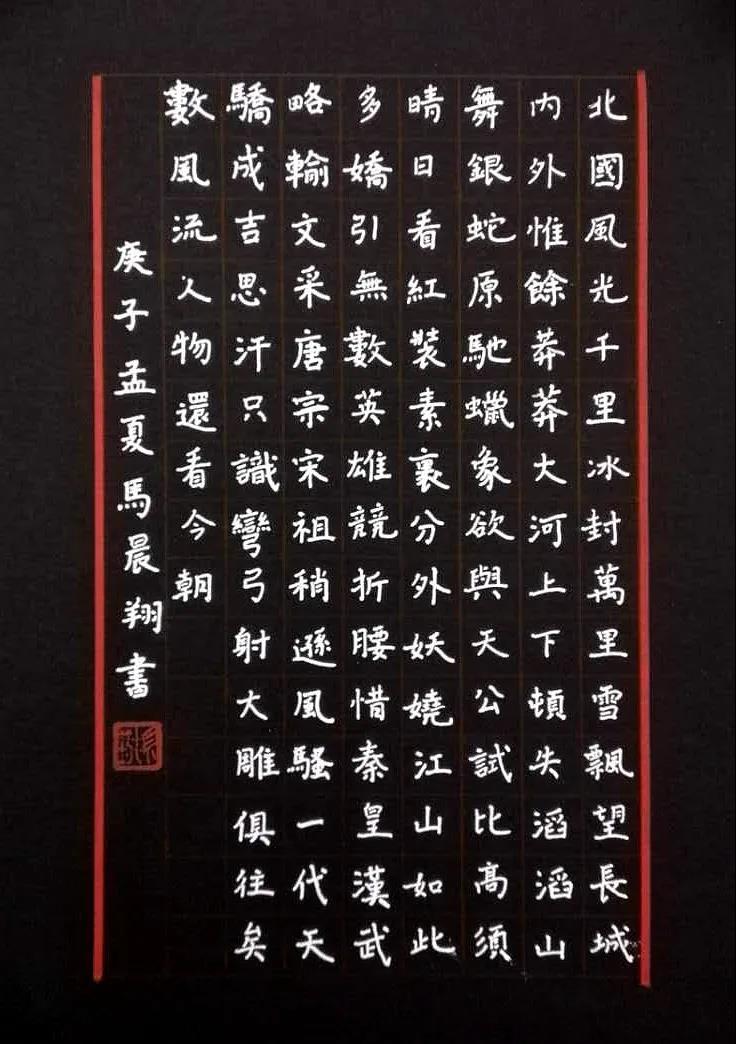 北國風光千里冰封萬里雪飄望長城
内外惟餘莽莽大河上下頓失滔滔山
舞銀蛇原馳蠟象欲與天公試比高須
晴日看紅裝素裹分外妖嬈江山如此
多嬌引無數英雄競折腰惜秦皇漢武
略輸文采唐宗宋祖稍遜風騷一代天
驕成吉思汗只識彎弓射大雕俱往矣
數風流人物還看今朝
庚子孟夏馬晨翔書